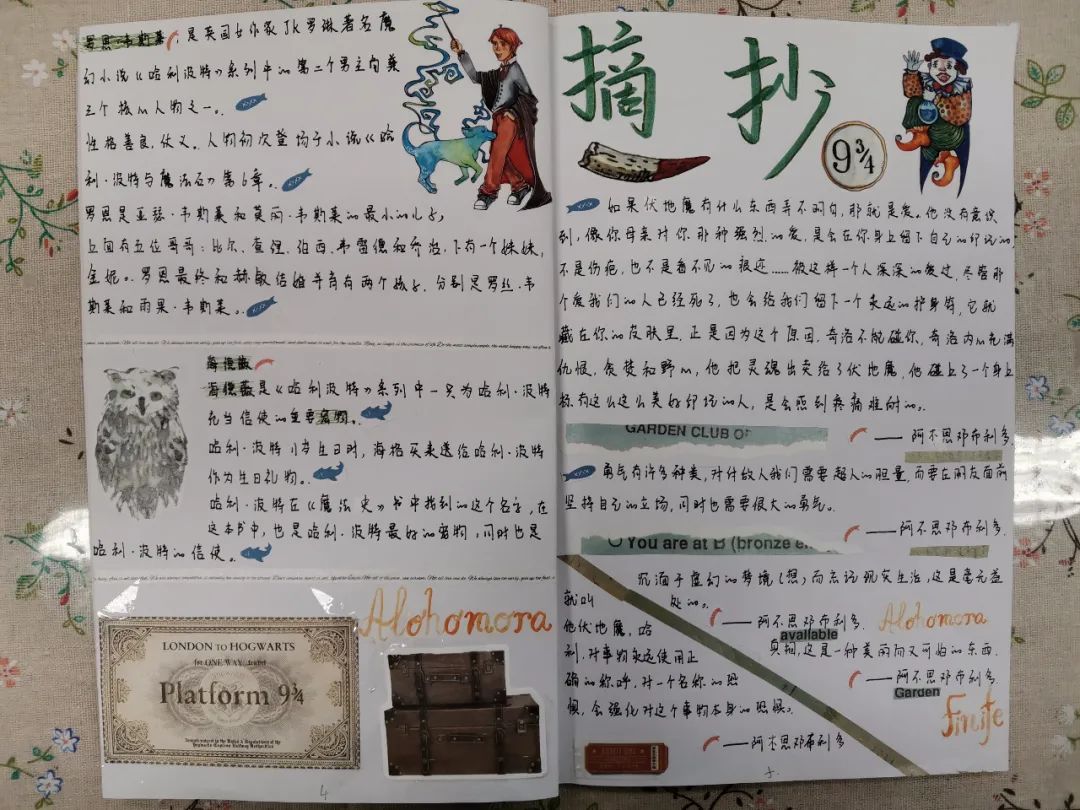 罗恩·韦斯莱,是英国女作家JK罗琳著名魔
幻小说《哈利波特》系列中的第二个男主角兼
三个核心人物之一。
性格善良,仗义。人物初次登场于小说《哈
利·波特与魔法石》第6章。
罗恩是亚瑟·韦斯莱和莫丽·韦斯莱的最小的儿子,
上面有五位哥哥:比尔、查理、珀西、弗雷德和乔治,下有一个妹妹,
金妮。罗恩最终和赫敏结婚并育有两个孩子,分别是罗丝·韦
斯莱和雨果·韦斯莱。
海德薇
海德薇是《哈利波特》系列中一只为哈利·波特
充当信使的重要宠物。
哈利·波特11岁生日时,海格买来送给哈利·波特
作为生日礼物。
哈利·波特在《魔法史》书中找到的这个名字,在
这本书中,也是哈利·波特最好的宠物,同时也是
哈利·波特的信使。
Alohomora
LONDON TO HOGWARTS
for ONE WAY travel
Platform 9¾
4
摘 抄
9¾
如果伏地魔有什么东西弄不明白,那就是爱。他没有意识
到,像你母亲对你那种强烈的爱,是会在你身上留下自己的印记的
不是伤疤,也不是看不见的痕迹……被这样一个人深深的爱过,尽管那
个爱我们的人已经死了,也会给我们留下一个永远的护身符,它就
藏在你的皮肤里,正是因为这个原因,奇洛不能碰你,奇洛内心充满
仇恨,贪婪和野心,他把灵魂出卖给了伏地魔,他碰上了一个身上
标有这么这么美好印记的人,是会感到疼痛难耐的。
GARDEN CLUB OF
——阿不思邓布利多.
勇气有许多种类,对付敌人我们需要超人的胆量,而要在朋友面前
坚持自己的立场,同时也需要很大的勇气。
——阿不思邓布利多.
You are at B (bronze
沉湎于虚幻的梦境(想)而忘记现实生活,这是毫无益
处的。
——阿不思邓布利多.
available
Alohomora
真相,这是一种美丽而又可怕的东西.
——阿不思邓布利多.
Garden
Finite
就叫
他伏地魔,哈
利,对事物永远使用正
确的称呼,对一个名称的恐
惧,会强化对这个事物本身的恐惧。
——阿不思邓布利多